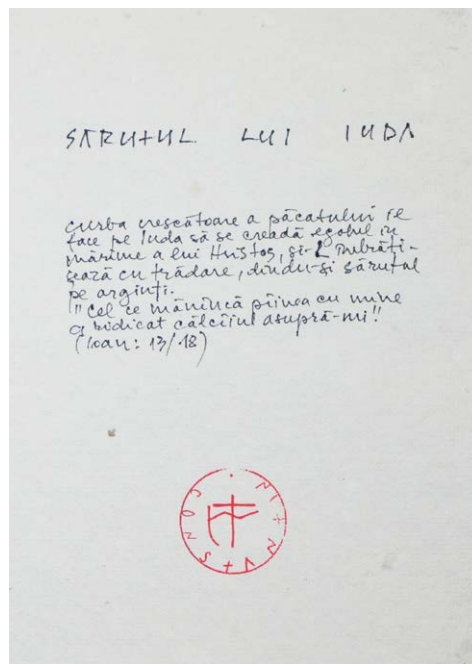 SĂRUTUL LUI IUDA
curba crescătoare a păcatului îl
face pe Iuda să se creadă egalul în
mărime a lui Hristos, și-L îmbrăți-
șează cu trădare, dîndu-și sărutul
pe arginți.
"Cel ce mănîncă pîinea cu mine
a ridicat călcîiul asupră-mi"
(Ioan: 13/18)